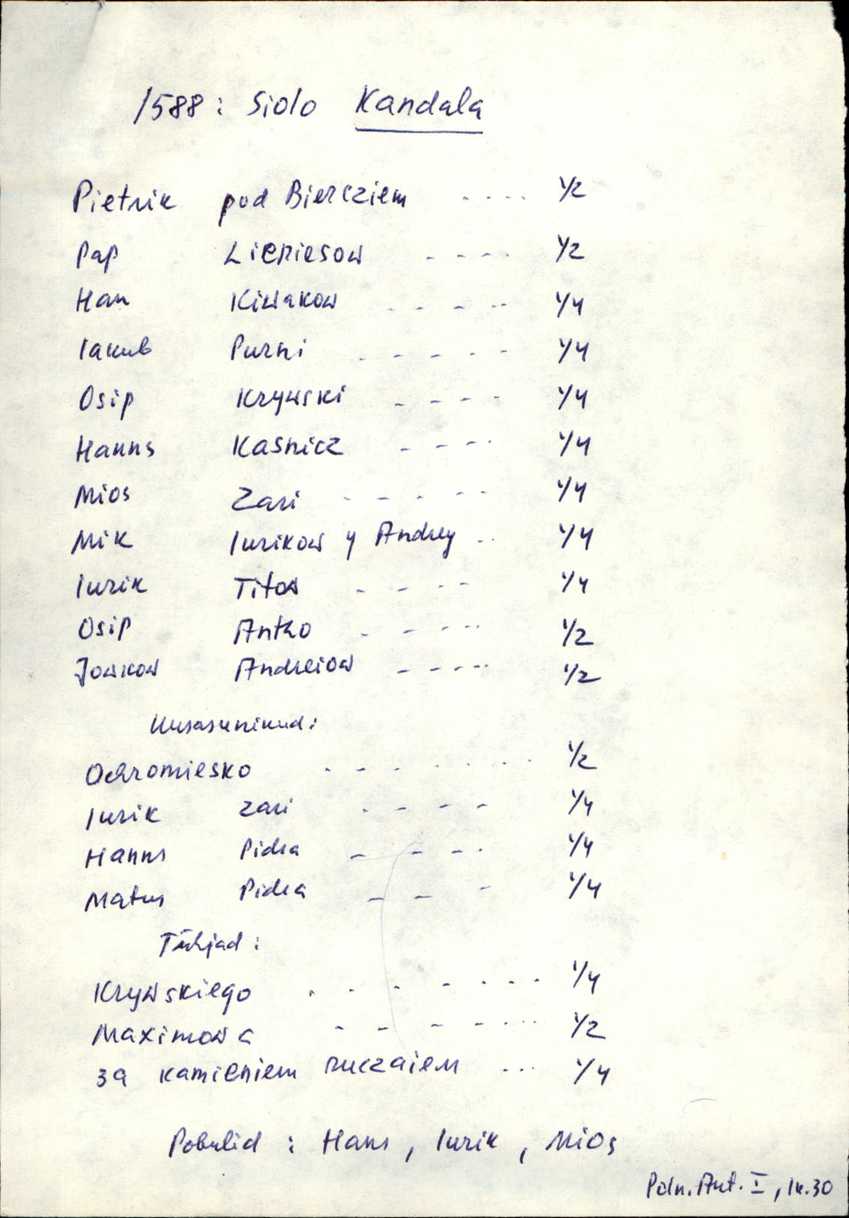 1588: Siolo Kandala
Pietrik pod Biercziem .... 1/2
Pap Liepiesow - - - - 1/2
Han Kiwakow - - - - - 1/4
Iakub Purni - - - - - 1/4
Osip Krywski - - - - 1/4
Hanns Kasnicz - - - - 1/4
Mios Zari - - - - - 1/4
Mik Iurikow y Andrey .. 1/4
Iurik Titow - - - - 1/4
Osip Antko - - - - - 1/2
Jowkow Andreiow - - - - - 1/2
Uusasunikud:
Ochromiesko - - - - - - - 1/2
Iurik Zari - - - - - 1/4
Hanns Pidra - - - - - 1/4
Matus Pidra - - - 1/4
Tühjad:
Krywskiego - - - - - - - 1/4
Maximowa - - - - - - - - 1/2
za kamieniem ruczaiem ... 1/4
Pobulid: Hans, Iurik, Mios
Poln. Akt. I, lk. 30